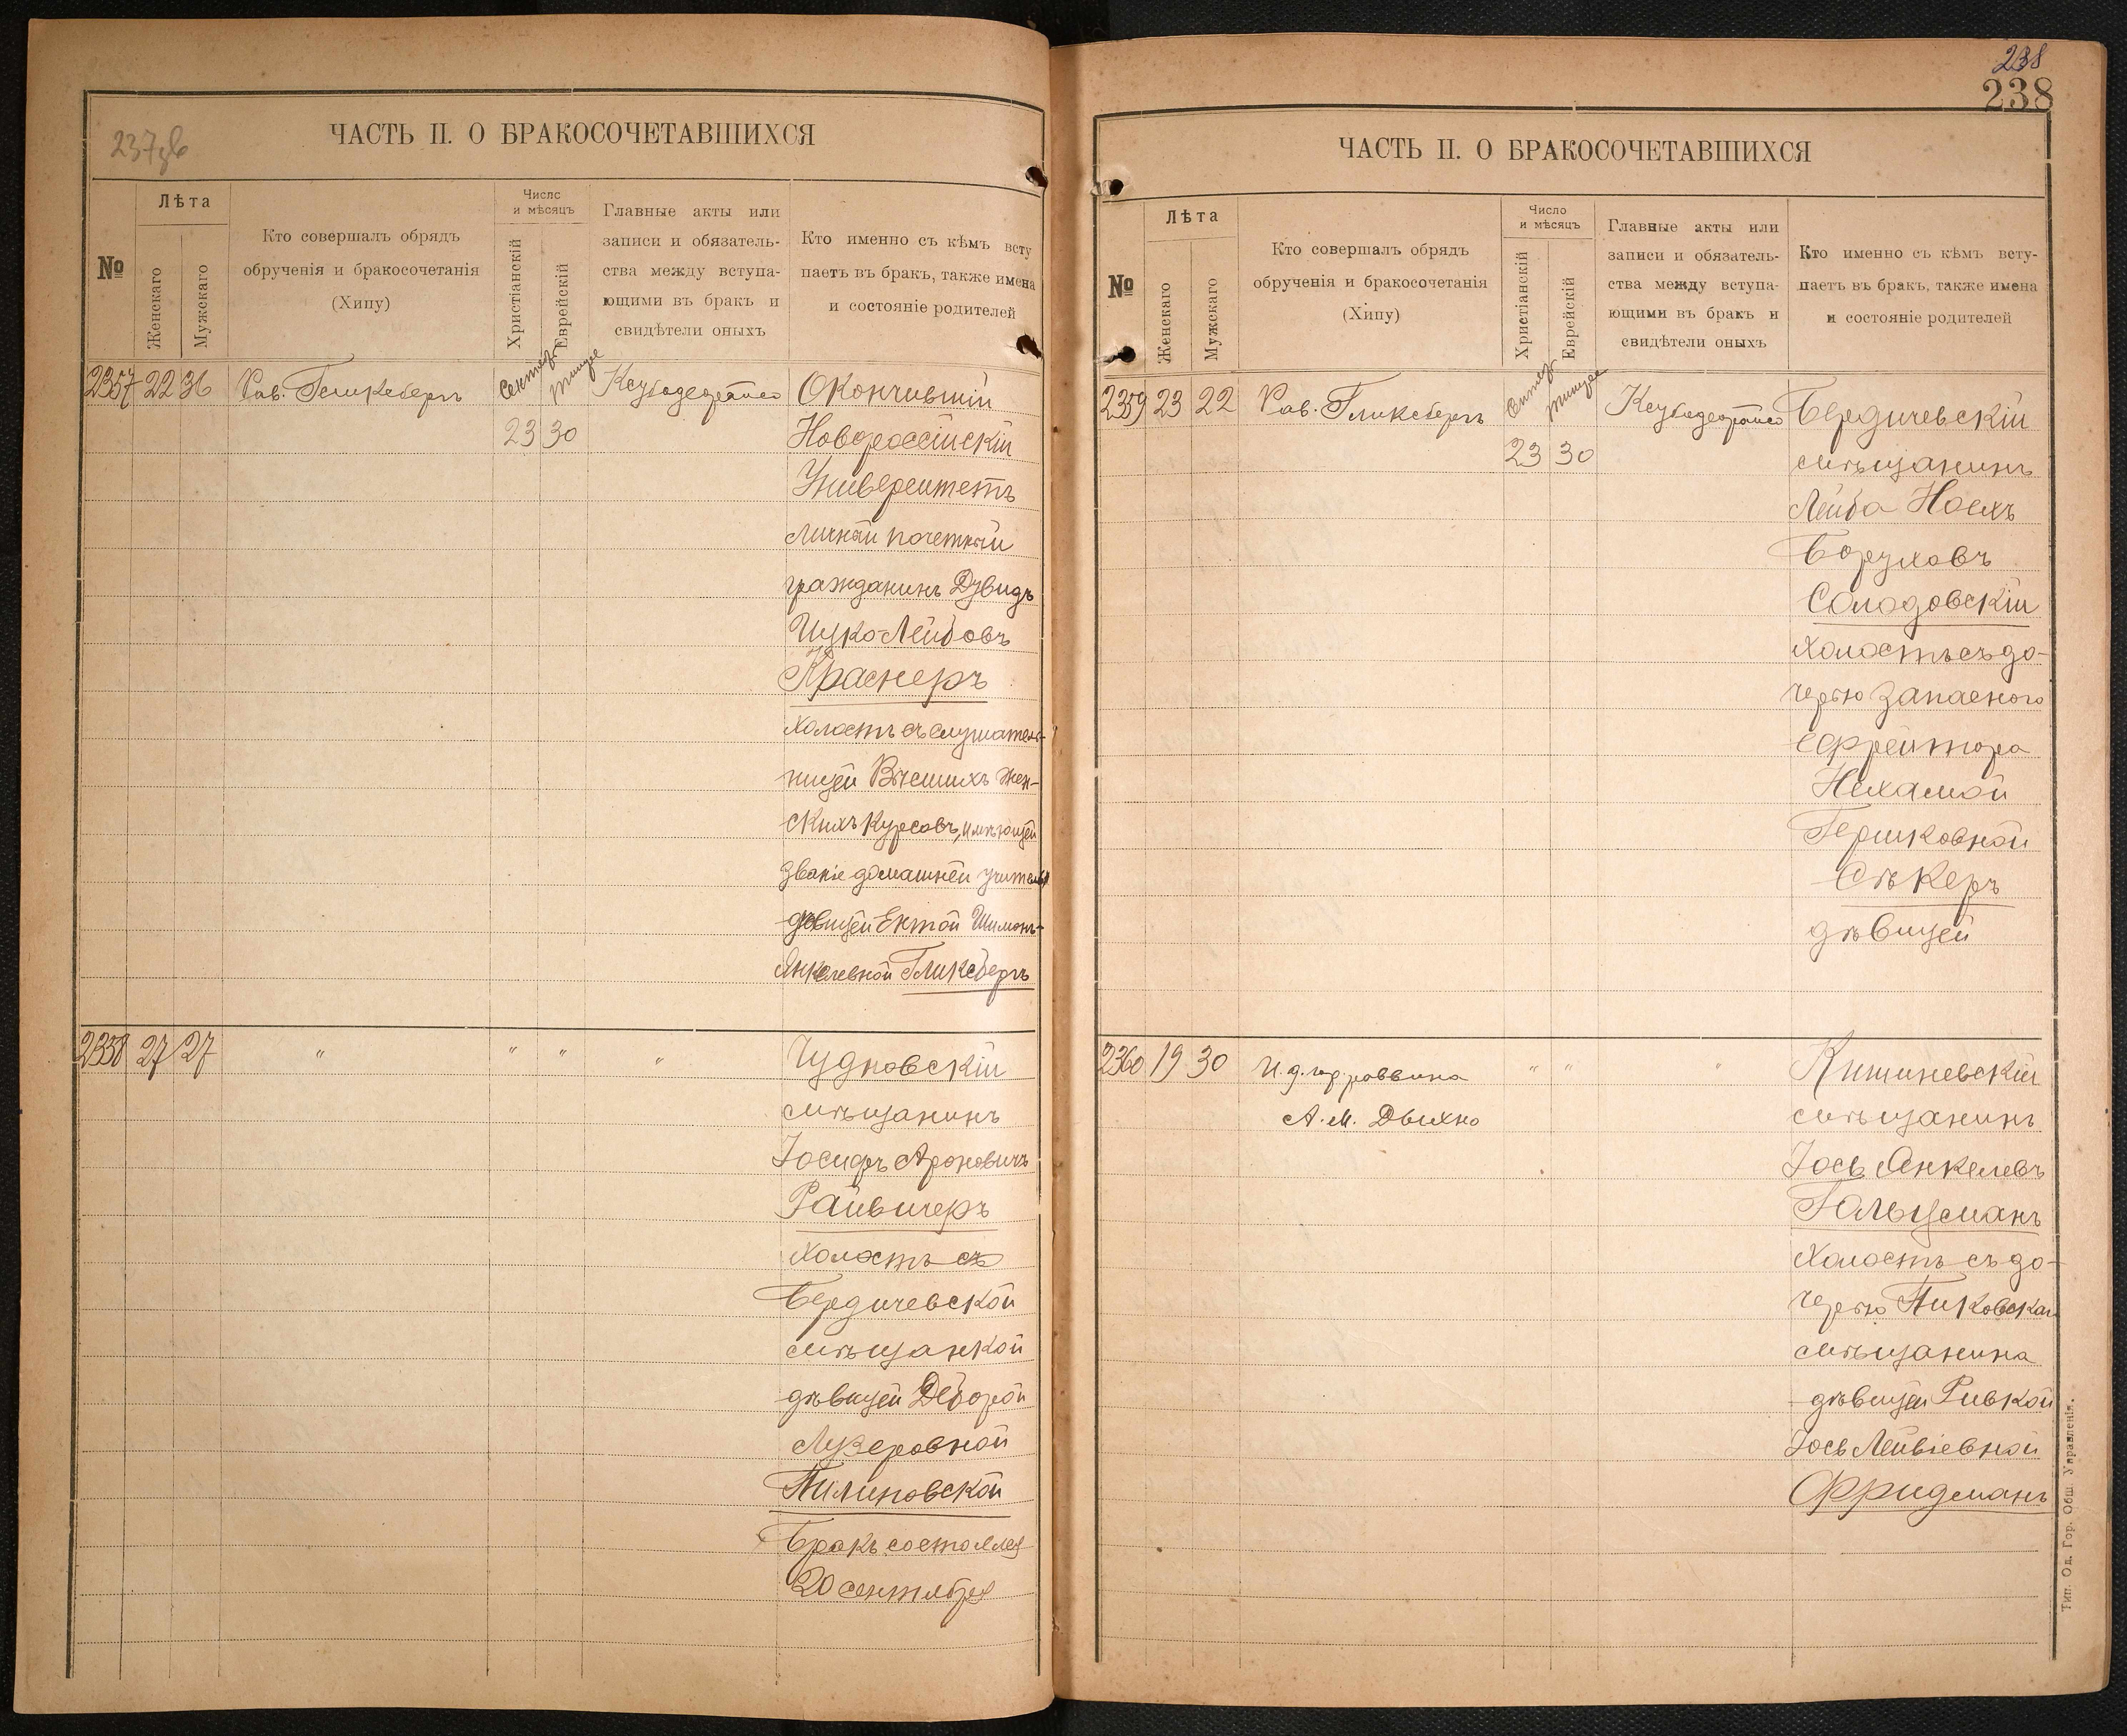 237 об
ЧАСТЬ II. О БРАКОСОЧЕТАВШИХСЯ
№
Лѣта
Женскаго
Мужскаго
Кто совершалъ обрядъ
обрученія и бракосочетанія
(Хипу)
Число
и мѣсяцъ
Христіанскій
Еврейскій
Главные акты или
записи и обязатель-
ства между вступа-
ющими въ бракъ и
свидѣтели оныхъ
Кто именно съ кѣмъ всту
паетъ въ бракъ, также имена
и состояніе родителей
2357 22 36 Рав. Гликсбергъ
Сентяб. Тишре
23 30
Окончившій
Новороссійскій
Университетъ
личный почетный
гражданинъ Дувидъ
Ицко Лейбовъ
Краснеръ
холостъ съ слушатель-
ницей Высшихъ Жен-
скихъ Курсовъ, имѣющей
званіе домашней учительн
дѣвицей Ентой Шимонъ-
Янкелевной Гликсбергъ
2358 27 27 " " " "
Чудновскій
мѣщанинъ
Іосифъ Ароновичъ
Райвичеръ
холостъ съ
Бердичевской
мѣщанкой
дѣвицей Деборой
Лузеровной
Пилиновской
Бракъ состоялся
20 сентября
238
238
ЧАСТЬ II. О БРАКОСОЧЕТАВШИХСЯ
№
Лѣта
Женскаго
Мужскаго
Кто совершалъ обрядъ
обрученія и бракосочетанія
(Хипу)
Число
и мѣсяцъ
Христіанскій
Еврейскій
Главные акты или
записи и обязатель-
ства между вступа-
ющими въ бракъ и
свидѣтели оныхъ
Кто именно съ кѣмъ всту-
паетъ въ бракъ, также имена
и состояніе родителей
2359 23 22 Рав. Гликсбергъ
Сентяб. Тишре
23 30
Бердичевскій
мѣщанинъ
Лейба Ноехъ
Боруховъ
Солодовскій
холостъ съ до-
черью запасного
ефрейтора
Нехамой
Гершковной
Сѣкеръ
дѣвицей
2360 19 30 И. д. гор. раввина " " "
А. М. Дыхно
Кишиневскій
мѣщанинъ
Іось Янкелевъ
Гольцманъ
холостъ съ до-
черью Пиковскаг.
мѣщанина
дѣвицей Ривкой
Іось Лейвіевной
Фридманъ
Тип. Од. Гор. Общ. Управленія.